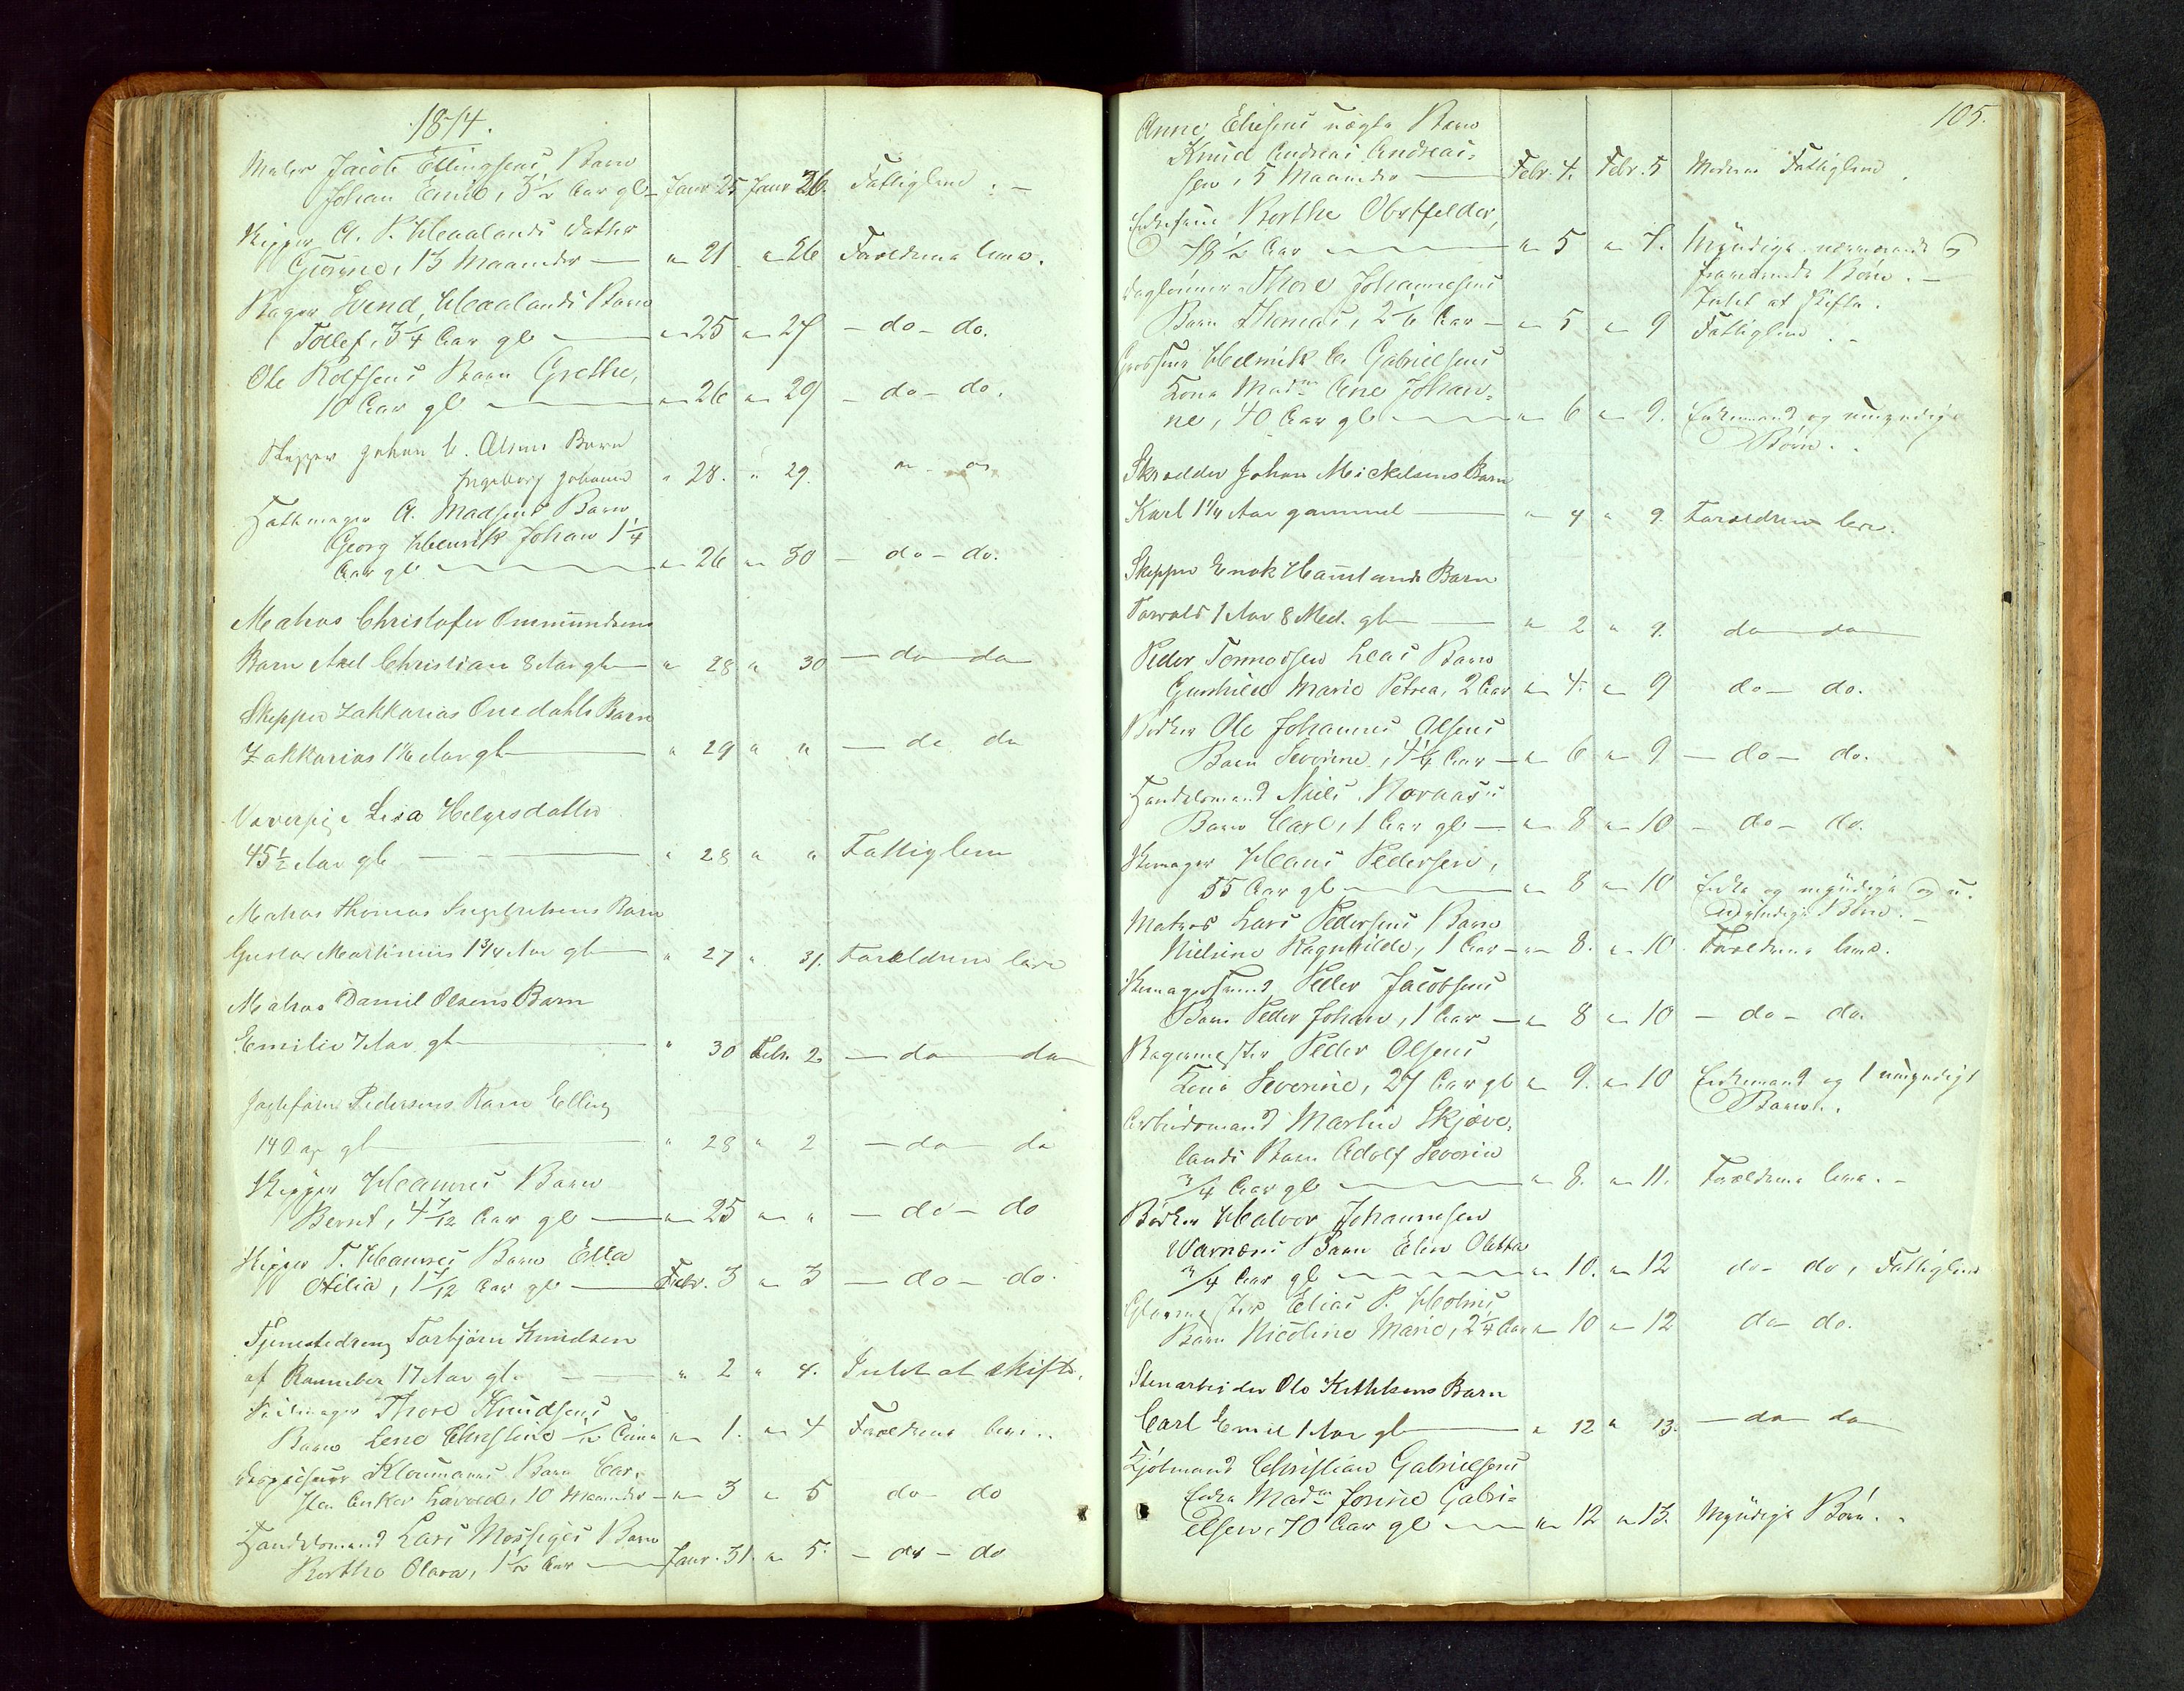 1874.
Maler Jacob Ellingsens Barn
Johan Emil, 3½ Aar gl. Janr 25 Janr 26. Fattiglem. —
Skipper A. P. Haalands Datter
Gurine, 13 Maaneder — " 21 " 26 Forældrene leve.
Bager Svend Haalands Barn
Tollef, 3¼ Aar gl — " 25 " 27 — do — do.
Ole Rolfsens Barn Grethe,
10 Aar gl — " 26 " 29 — do — do.
Skipper Johan Olsens Barn
Ingeborg Johanne " 28. " 29. " "
A. Madsens Barn
Georg Henrik Johan 1¼
Aar gl. — " 26 " 30 — do — do.
Matros Christofer Ommundsens
Barn Axel Christian 8 Aar gl — " 28 " 30 — do do
Skipper Zakkarias Barn
Zakkarias 1½ Aar gl — " 29 " " — do do
Væverpige Lisa Helgesdatter
45½ Aar gl — " 28 " " Fattiglem
Matros Thomas Ingebretsens Barn
Gustav Martinius 1¾ Aar gl — " 27 " 31. Forældrene leve
Matros Daniel Olsens Barn
Emilie 7 Aar gl — " 30 Febr. 2 — do do
Pedersens Barn Elling
14 Dage gl — " 28 " 2 — do do
Skipper Hamres Barn
Bernt, 4 7/12 Aar gl — " 25 " " — do — do
Skipper T. Hamres Barn Ella
Otilia, 1 7/12 Aar gl — Febr. 3 " 3 — do — do.
Tjenestedreng Torbjørn Knudsen
af Rennebø 17 Aar gl. — " 2 " 4. Intet at skifte.
Thore Knudsens
Barn Lene Christine ½ Time " 1. " 4 Forældrene leve..
Klausmanns Barn Car-
sten Anker Harald, 10 Maaneder — " 3 " 5 do — do
Handelsmand Lars Mossiges Barn
Berthe Olava, 1½ Aar — Janr. 31. " 5. — do — do
105.
Anne Eliesens uægte Barn
Knud Andreas Andreas-
sen, 5 Maaneder — Febr. 4. Febr. 5 Moderen Fattiglem.
Enkefrue Berthe Obstfelder,
78½ Aar — " 5 " 7. Myndige nærværende og
fraværende Børn. —
Daglønner Thore Johannesens Intet at skifte.
Barn Thomas, 2 1/6 Aar — " 5 " 9 Fattiglem. —
Helmik C. Gabrielsens
Kone Madm Ane Johan-
ne, 40 Aar gl — " 6 " 9. Enkemand og umyndige
Børn..
Skrædder Johan Mickelsens Barn
Karl 1¼ Aar gammel — " 4 " 9. Forældrene leve.
Skipper Enok Hauslands Barn
Torvald 1 Aar 8 Med. gl — " 2 " 9. do do
Peder Tormodsen Leas Barn
Gunhild Marie Petrea, 2 Aar " 4. " 9 do — do.
Bødker Ole Johannes Olsens
Barn Severine, 4¼ Aar — " 6 " 9 — do — do.
Handelsmand Niels Rovaas's
Barn Carl, 1 Aar gl — " 8 " 10 — do — do.
Skomager Hans Pedersen,
55 Aar gl — " 8 " 10 Enke og myndige og u-
myndige Børn. —
Matros Lars Pedersens Barn
Nielsine Ragnhilde, 1 Aar — " 8. " 10 Forældrene leve.
Skomagersvend Peder Jacobsens
Barn Peder Johan, 1 Aar — " 8 " 10 — do — do.
Bagermester Peder Olsens
Kone Severine, 27 Aar gl " 9. " 10 Enkemand og 1 umyndigt
Barn..
Arbeidsmand Martin Skjæve-
lands Barn Adolf Severin
¾ Aar gl — " 8. " 11. Forældrene leve. —
Bødker Halvor Johannesen
Warnæs Barn Elen Olette
¾ Aar gl — " 10. " 12 do — do, Fattiglem
Glarmester Elias P. Holms
Barn Nicoline Marie, 2¼ Aar " 10 " 12 do — do.
Stenarbeider Ole Ketilsens Barn
Carl Emil 1 Aar gl — " 12 " 13. — do do
Kjøbmand Christian Gabrielsens
Enke Madm Jorine Gabri-
elsen, 70 Aar gl — " 12 " 13. Myndige Børn..